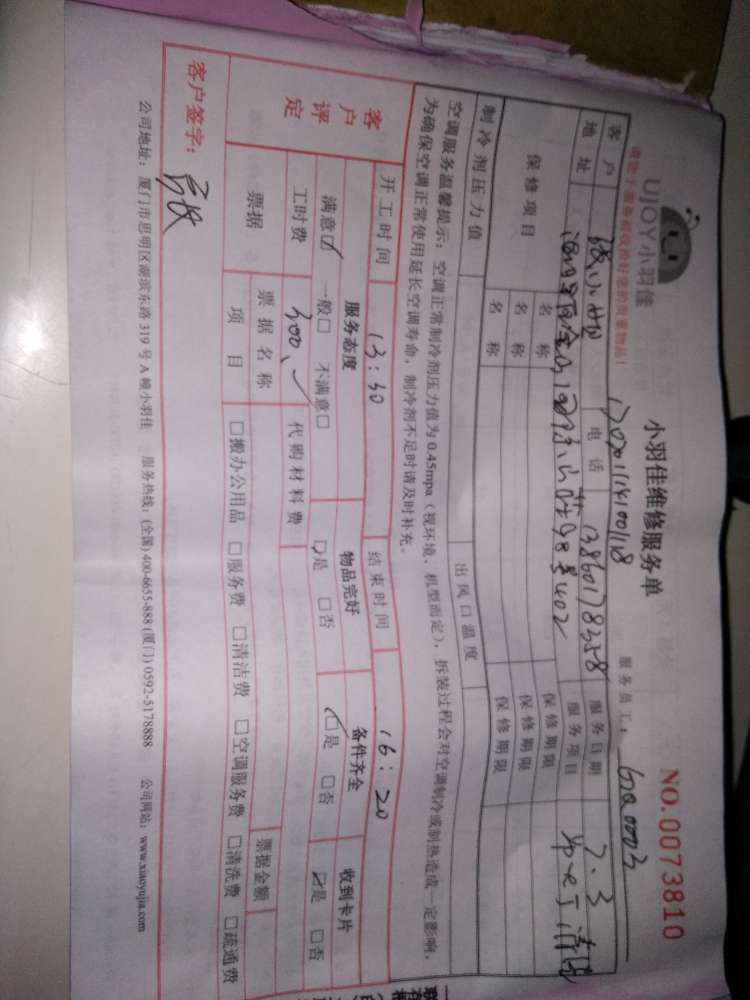 UJOY小羽佳
小羽佳维修服务单
NO.0073810
请您于服务前收拾好您的贵重物品！
服务员工：
客户 电话 13860178358 服务日期 7.3
地址 服务项目
保修项目 名称 保修期限
名称 保修期限
名称 保修期限
制冷剂压力值 出风口温度
空调服务温馨提示：空调正常制冷剂压力值为0.45mpa（视环境、机型而定），拆装过程会对空调制冷或制热造成一定影响，
为确保空调正常使用延长空调寿命，制冷剂不足时请及时补充。
开工时间 13:30 结束时间 16:20
客户评定
服务态度 物品完好 备件齐全 收到卡片
满意☑ 一般□ 不满意□ ☑是 □否 ☑是 □否 ☑是 □否
工时费 300、 代购材料费
票据 票据名称 票据金额
项目 □搬办公用品 □服务费 □清洁费 □空调服务费 □清洗费 □疏通费
客户签字：
公司地址：厦门市思明区湖滨东路319号A幢小羽佳 服务热线：(全国)400-6655-888 (厦门)0592-5178888 公司网站：www.xiaoyujia.com